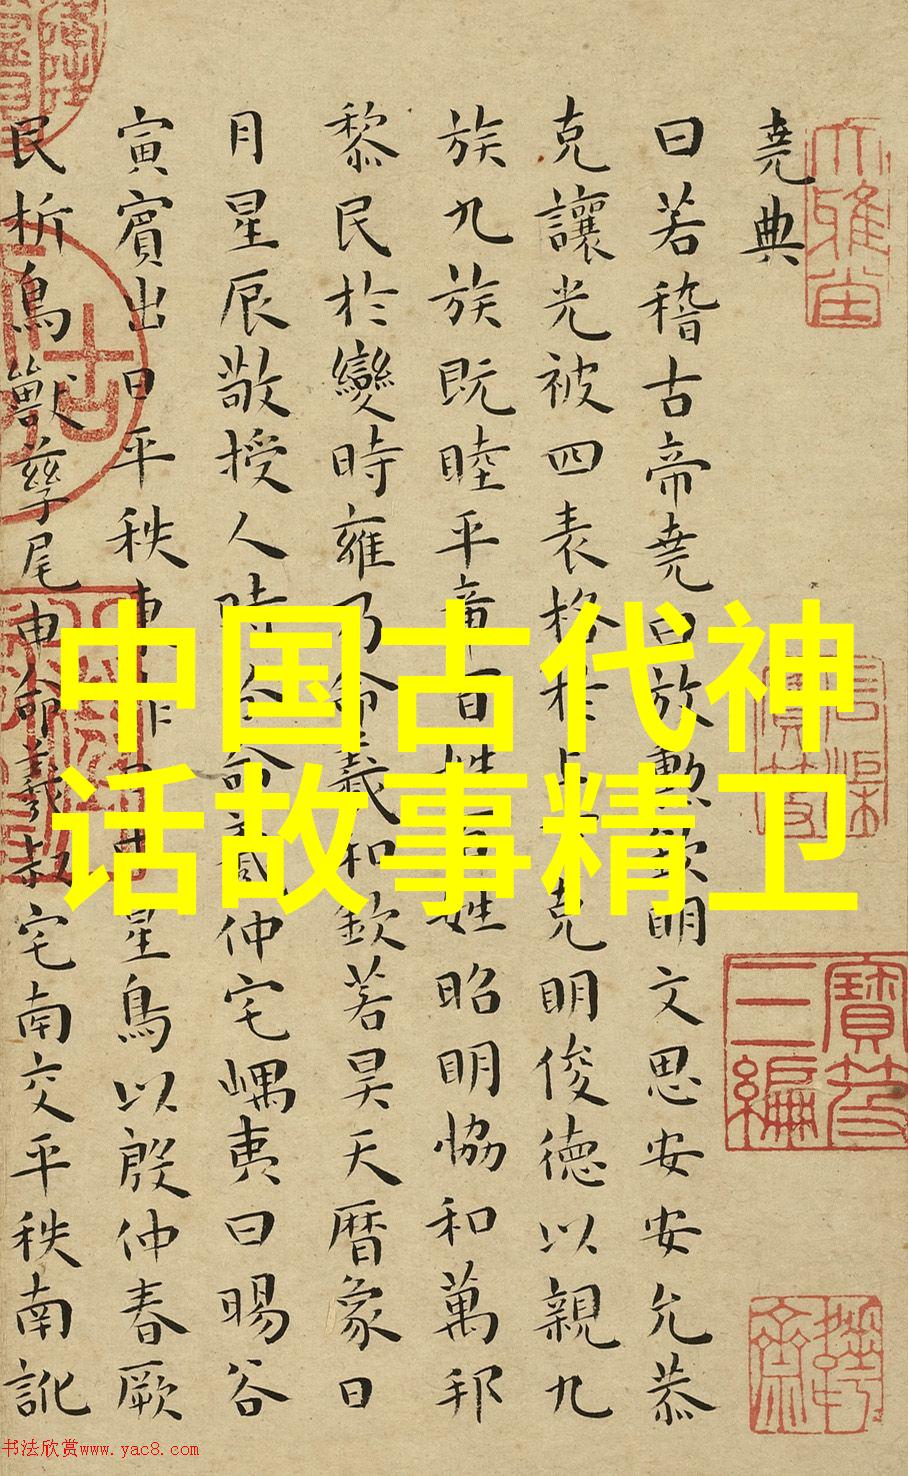 堯典
曰若稽古帝堯曰放勲欽明文思安安允恭
克讓光被四表格於上下克明俊德以親九
族九族既睦平章百姓百姓昭明恊和萬邦
黎民於變時雍乃命羲和欽若昊天曆象日
月星辰敬授人時分命羲仲宅嵎夷曰暘谷
寅賓出日平秩東作日中星鳥以殷仲春厥
民析鳥獸孳尾申命羲叔宅南交平秩南訛
中国古代神
话故事精卫
寶笈
三編
书法欣赏www.yac8.com